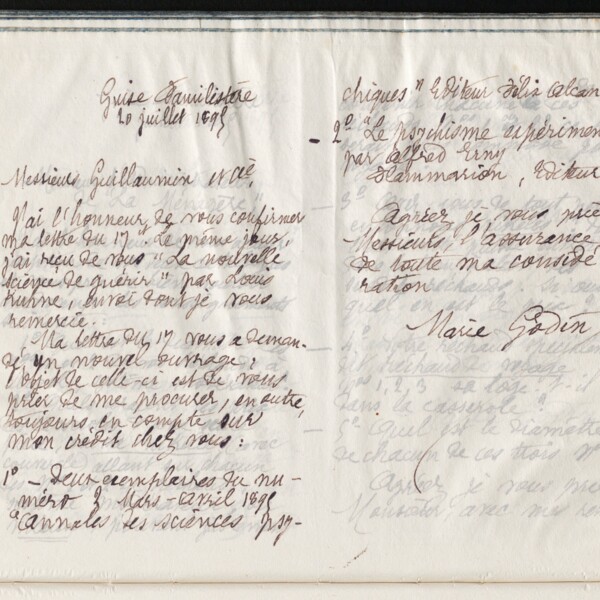 Guise Familistère
20 juillet 1895
Messieurs Guillaumin et Cie,
J'ai l'honneur de vous confirmer
ma lettre du 17. Le même jour,
j'ai reçu de vous "La nouvelle
science de guérir" par Louis
Kuhne, envoi dont je vous
remercie.
Ma lettre du 17 vous a deman-
dé un nouvel ouvrage;
l'objet de celle-ci est de vous
prier de me procurer, en outre,
toujours en compte sur
mon crédit chez vous:
1º - Deux exemplaires du nu-
méro 2 Mars-avril 1895
"Annales des sciences psy-
chiques" Editeur Félix Alcan
- 2º "Le psychisme expérimen
par Alfred Erny
Flammarion, Editeur
Agréez, je vous prie
Messieurs, l'assurance
de toute ma considé
ration
Marie Godin